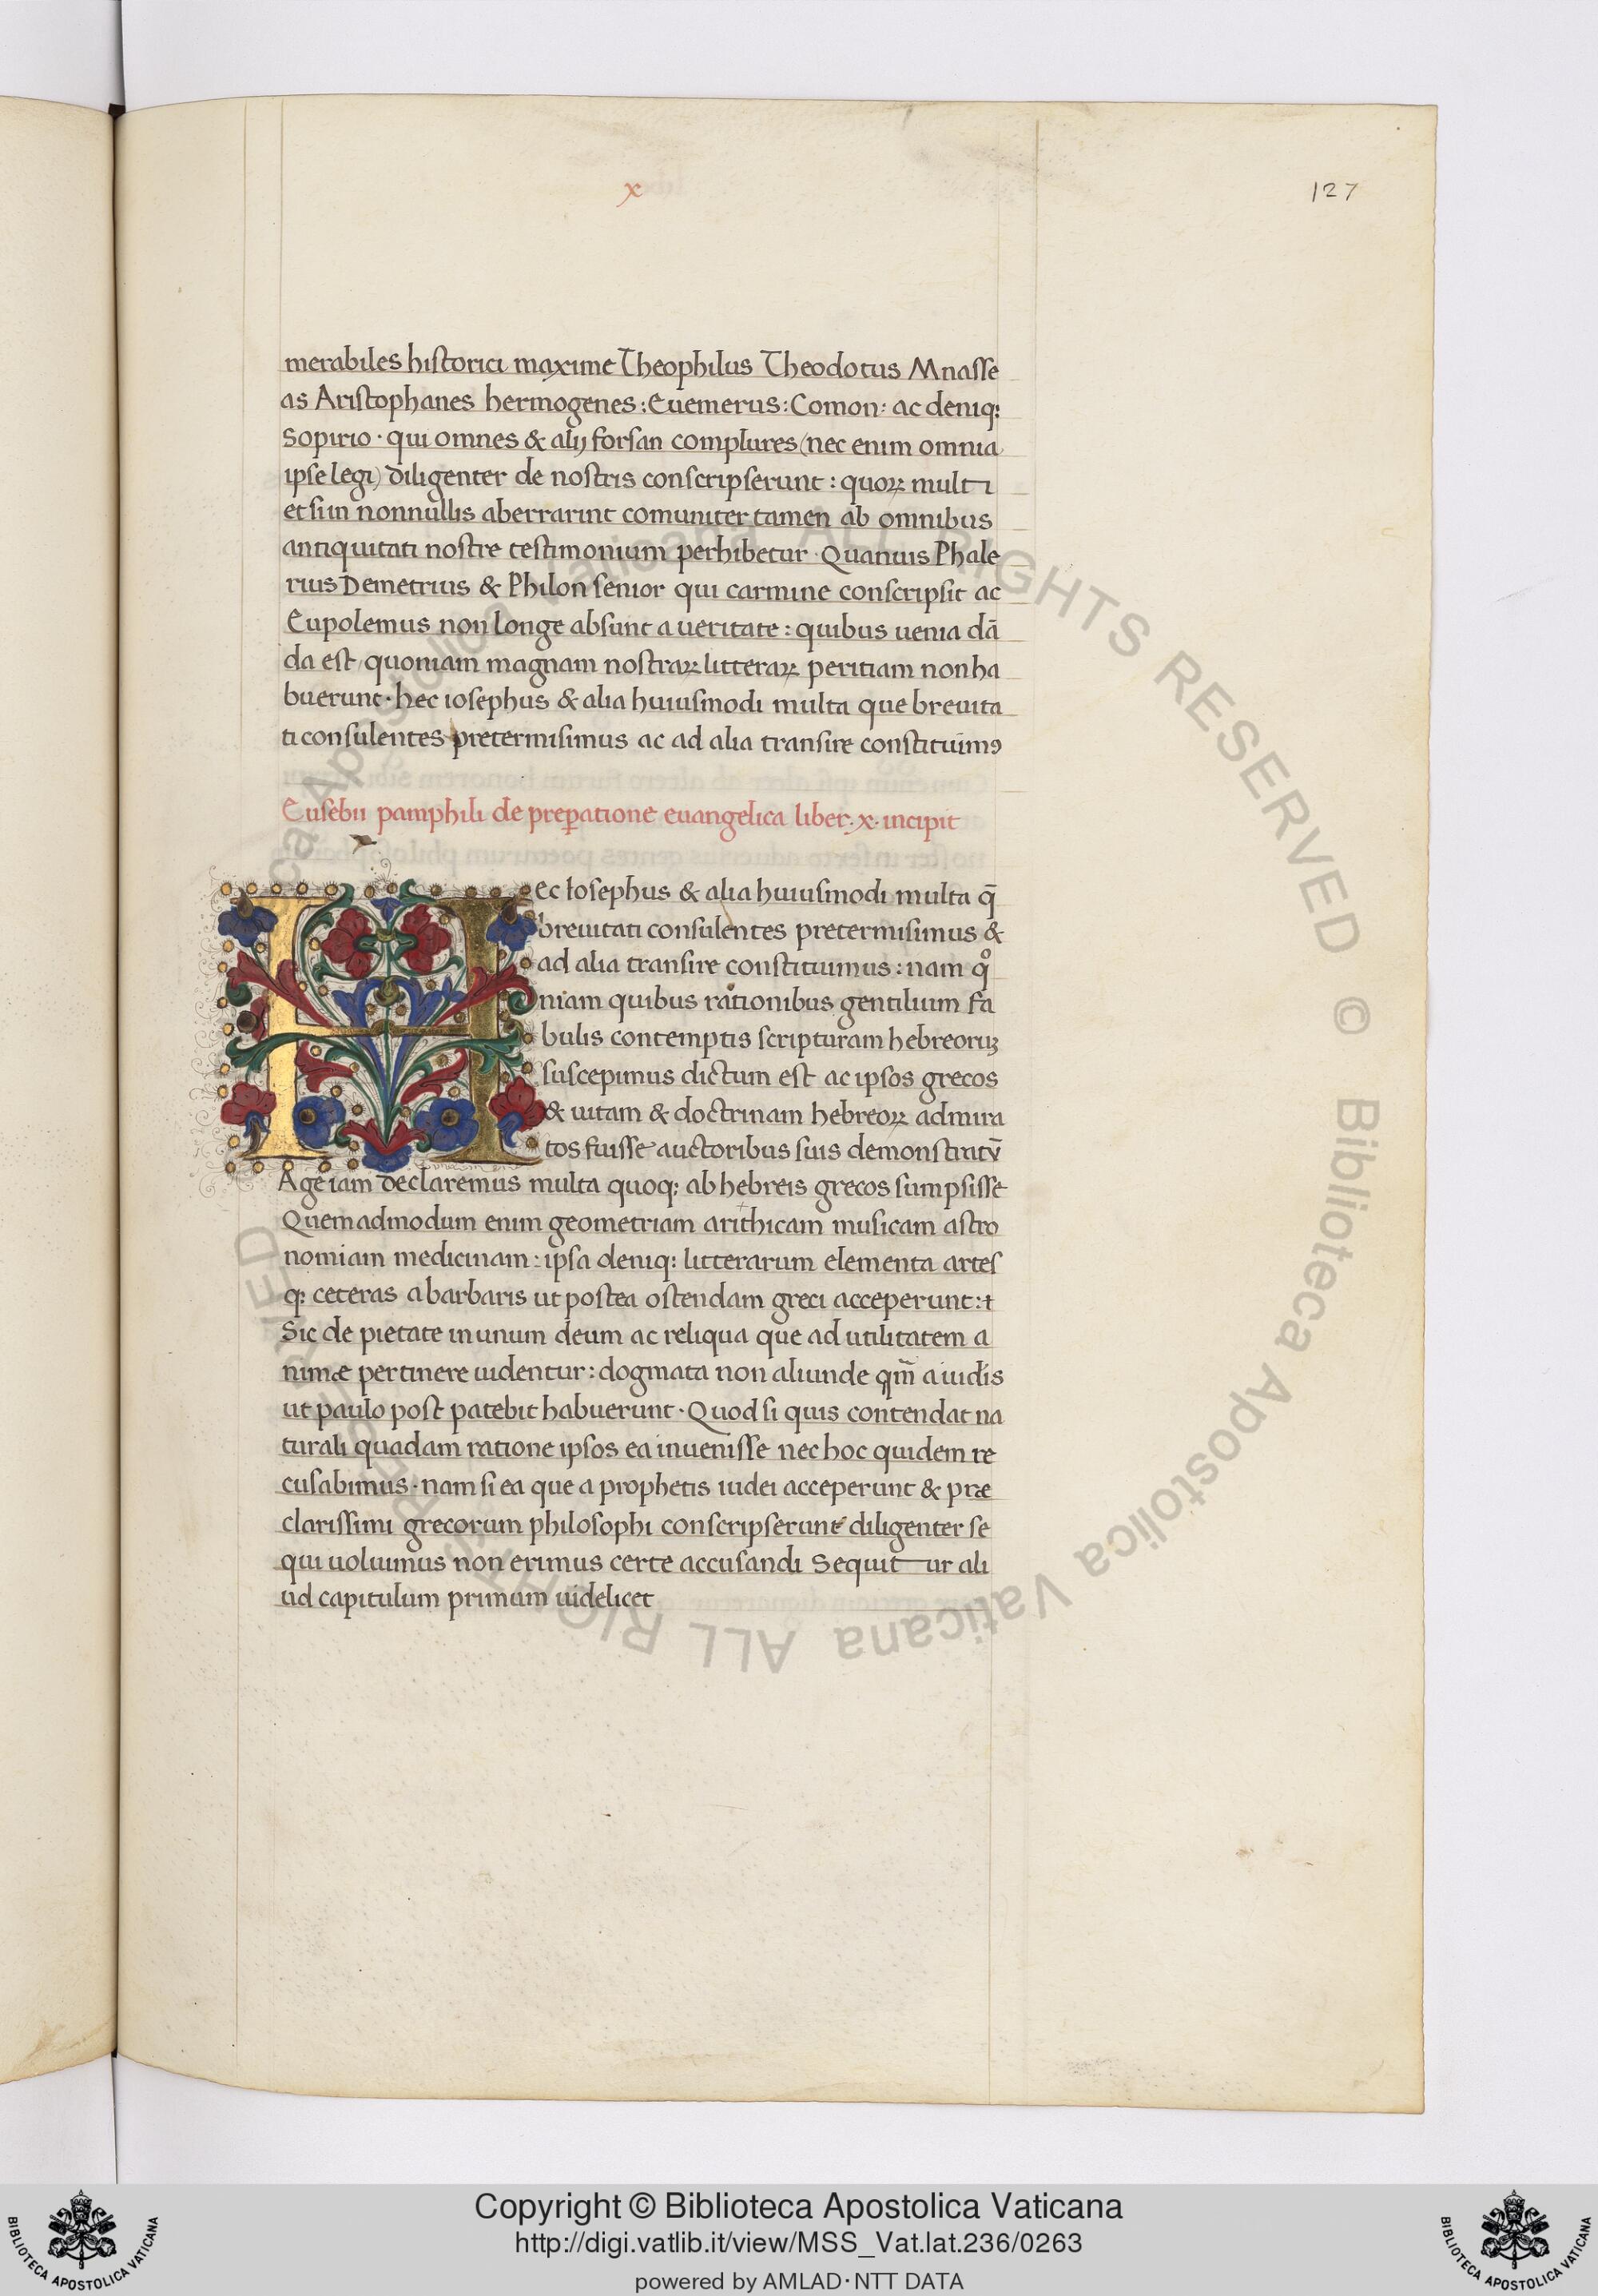 x
127
merabiles historici maxime Theophilus Theodotus Mnasse
as Aristophanes hermogenes : Euemerus : Comon : ac deniqꝫ
Sopirio · qui omnes & alij forsan complures (nec enim omnia
ipse legi) diligenter de nostris conscripserunt : quoꝝ multi
etsi in nonnullis aberrarint comuniter tamen ab omnibus
antiquitati nostre testimonium perhibetur · Quanuis Phale
rius Demetrius & Philon senior qui carmine conscripsit ac
Eupolemus non longe absunt a ueritate : quibus uenia dā
da est quoniam magnam nostraꝝ litteraꝝ peritiam non ha
buerunt · hec iosephus & alia huiusmodi multa que breuita
ti consulentes pretermisimus ac ad alia transire constituimꝰ
Eusebii pamphili de preꝑatione euangelica liber · x · incipit
Hec Iosephus & alia huiusmodi multa q̄
breuitati consulentes pretermisimus &
ad alia transire constituimus : nam qͦ
niam quibus rationibus gentilium fa
bulis contemptis scripturam hebreoruꝫ
suscepimus dictum est ac ipsos grecos
& uitam & doctrinam hebreoꝝ admira
tos fuisse auctoribus suis demonstratū
Age iam declaremus multa quoqꝫ ab hebreis grecos sumpsisse
Quemadmodum enim geometriam arithicam musicam astro
nomiam medicinam : ipsa deniqꝫ litterarum elementa artes
qꝫ ceteras a barbaris ut postea ostendam greci acceperunt : &
Sic de pietate in unum deum ac reliqua que ad utilitatem a
nimæ pertinere uidentur : dogmata non aliunde qm̄ a iudīs
ut paulo post patebit habuerunt · Quod si quis contendat na
turali quadam ratione ipsos ea inuenisse nec hoc quidem re
cusabimus · nam si ea que a prophetis iudei acceperunt & præ
clarissimi grecorum philosophi conscripserunt diligenter se
qui uoluimus non erimus certe accusandi Sequitur ali
ud capitulum primum uidelicet
Copyright © Biblioteca Apostolica Vaticana
http://digi.vatlib.it/view/MSS_Vat.lat.236/0263
powered by AMLAD·NTT DATA